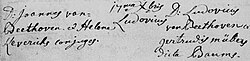 D: joannes van Beethoven & Helena Keverichs conjuges
17ma Xbris Ludovicus
D: Ludovicus van Beethoven & gertrudis müllers dicta Baums